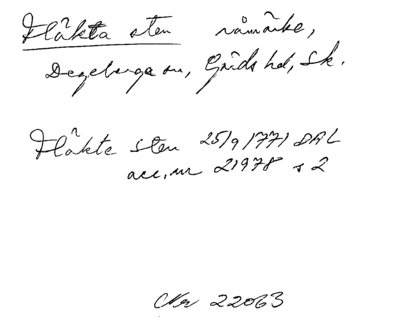 Fläkta sten råmärke,
Degeberga sn, Gärds hd, Sk.
Fläkte sten 25/9 1771 DAL
acc.nr 21978 s 2
22063